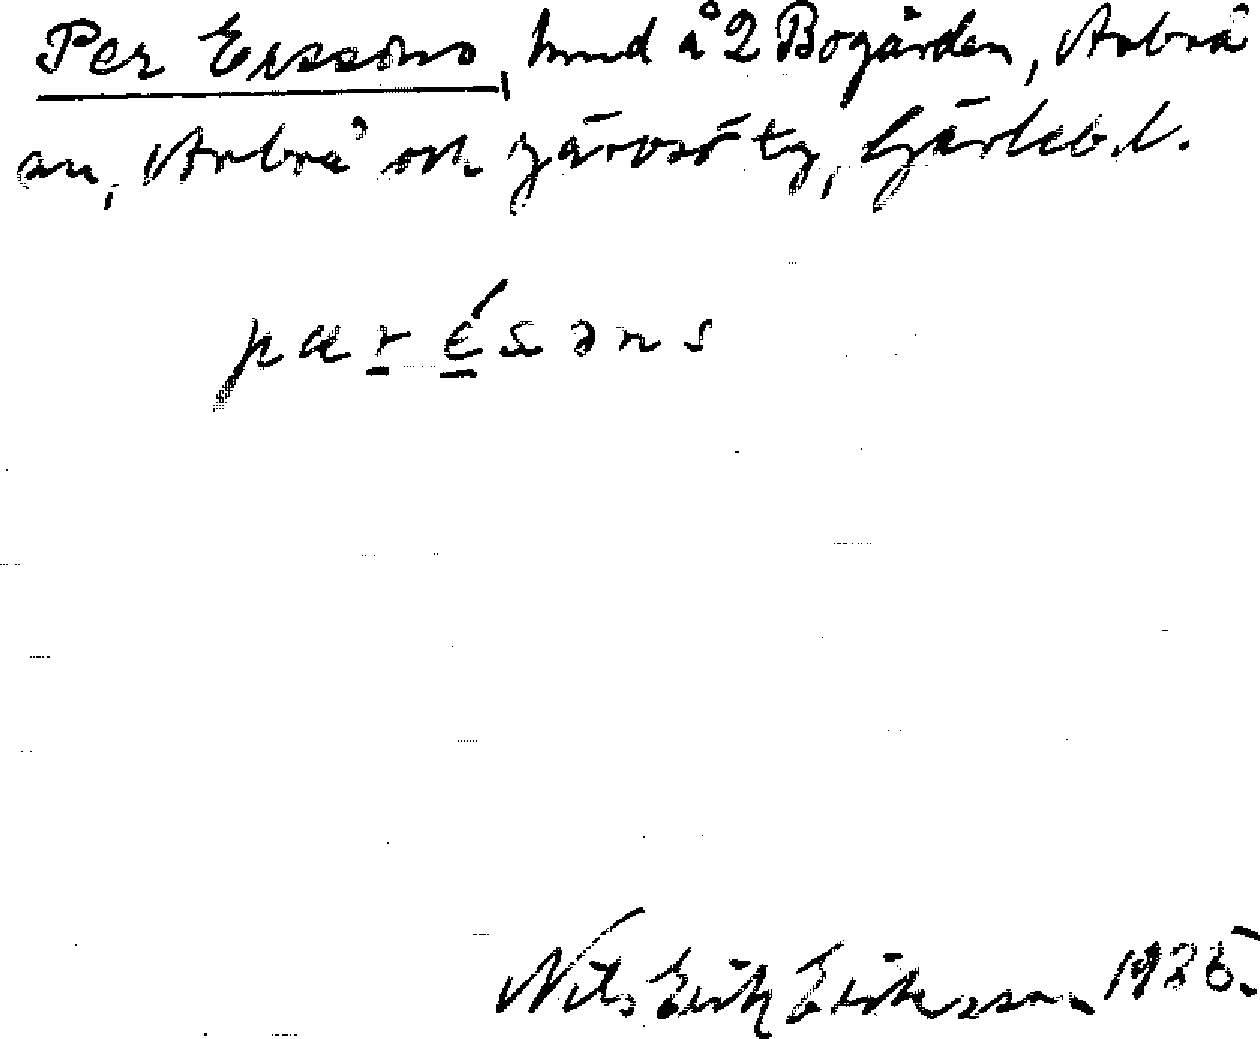 Per Erssons, hmd å 2 Bogården, Arbrå
sn, Arbrå och Järvsö tg, Gävleb. l.
pær ésons
Nils Erik Eriksson 1935.